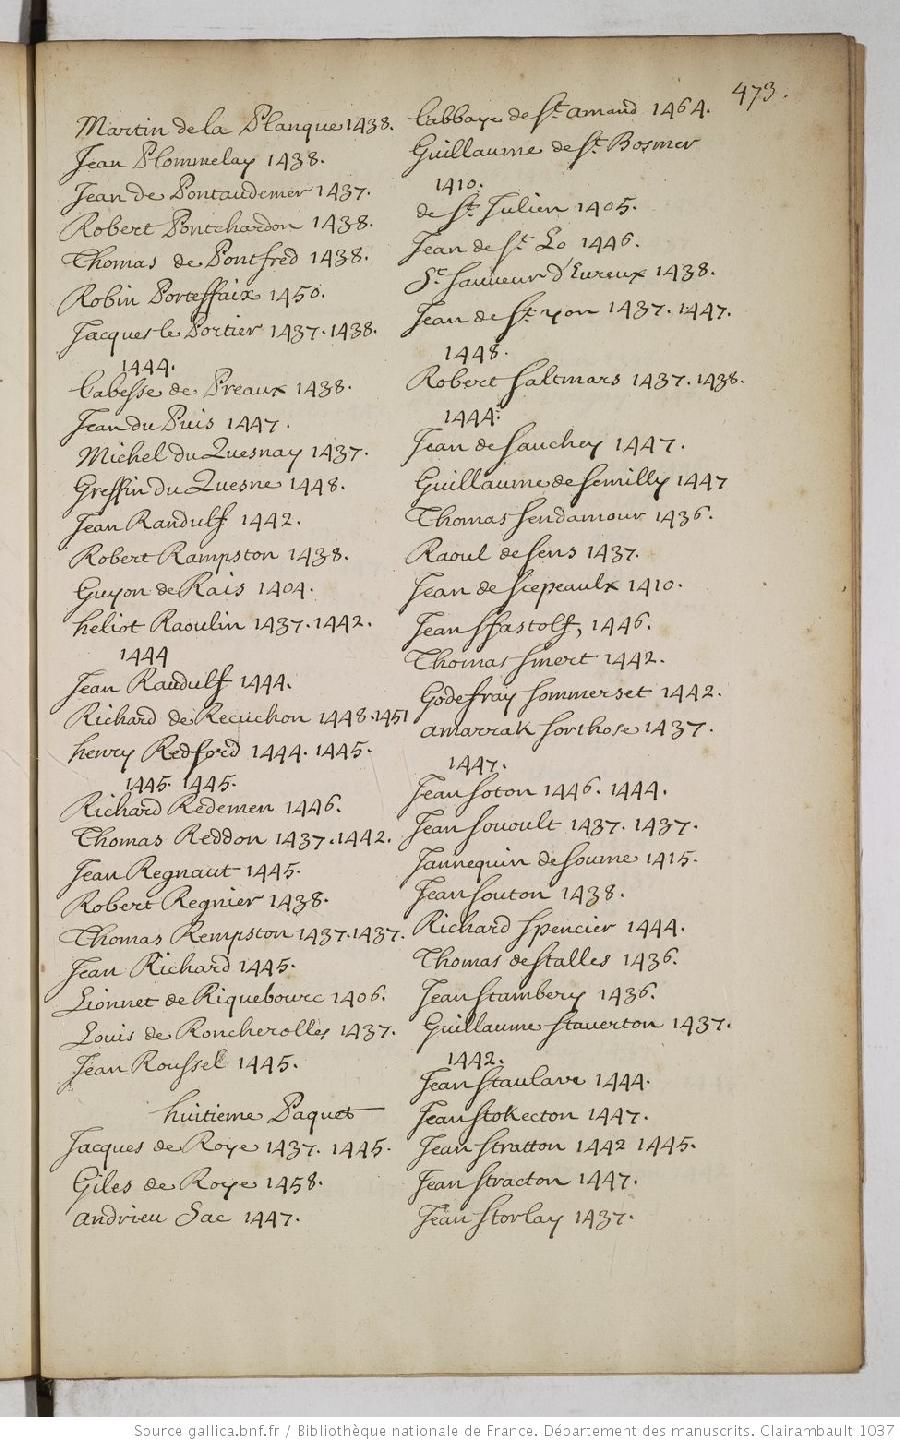 473.
Martin de la Planque 1438.
Jean Plommelay 1438.
Jean de Pontaudemer 1437.
Robert Pontchardon 1438.
Thomas de Pontfred 1438.
Robin Porteffaix 1450.
Jacques le Portier 1437. 1438.
1444.
l'abesse de Preaux 1438.
Jean du Puis 1447.
Michel du Quesnay 1437.
Greffin du Quesne 1448.
Jean Randulf 1442.
Robert Rampston 1438.
Guyon de Rais 1404.
heliot Raoulin 1437. 1442.
1444
Jean Randulf 1444.
Richard de Recuchon 1448. 1451
henry Redford 1444. 1445.
1445. 1445.
Richard Redemen 1446.
Thomas Reddon 1437. 1442.
Jean Regnaut 1445.
Robert Regnier 1438.
Thomas Rempston 1437. 1437.
Jean Richard 1445.
Lionnet de Riquebourc 1406.
Louis de Roncherolles 1437.
Jean Roussel 1445.
huitieme Paquet
Jacques de Roye 1437. 1445.
Giles de Roye 1458.
andrieu Sac 1447.
l'abbaye de St. amand 1464.
Guillaume de St. Bosmer
1410.
de St. Julien 1405.
Jean de St. Lo 1446.
St. sauveur d'Evreux 1438.
Jean de St. yon 1437. 1447.
1448.
Robert saltmars 1437. 1438.
1444.
Jean de sauchey 1447.
Guillaume de semilly 1447
Thomas sendamour 1436.
Raoul de sens 1437.
Jean de scepeaulx 1410.
Jean sfastolf, 1446.
Thomas smert 1442.
Godefray sommerset 1442.
amarrak sorthose 1437.
1447.
Jean soton 1446. 1444.
Jean souoult 1437. 1437.
Jannequin de soume 1415.
Jean souton 1438.
Richard spencier 1444.
Thomas de stalles 1436.
Jean stambery 1436.
Guillaume staverton 1437.
1442.
Jean staulare 1444.
Jean stokecton 1447.
Jean stratton 1442 1445.
Jean stracton 1447.
Jean storlay 1437.
Source gallica.bnf.fr / Bibliothèque nationale de France. Département des manuscrits. Clairambault 1037